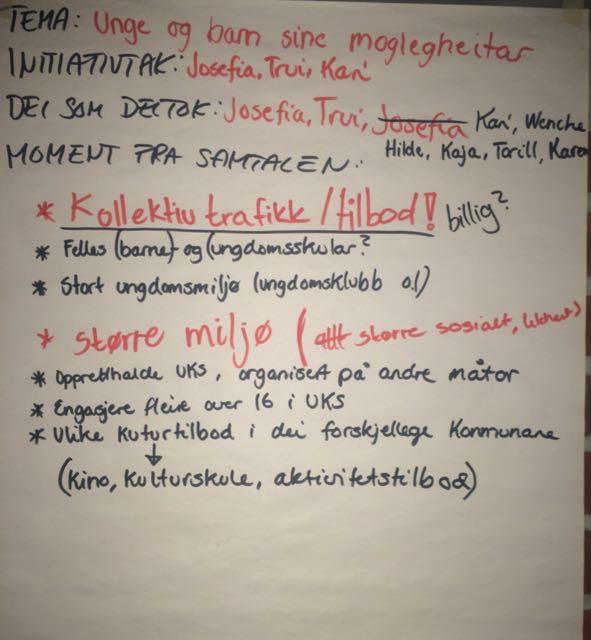 TEMA: Unge og barn sine moglegheitar
INITIATIVTAK: Josefia, Trui, Kari
DEI SOM DELTOK: Josefia, Trui, Josefia Kari, Wenche
Hilde, Kaja, Torill, Karen
MOMENT FRA SAMTALEN:
* Kollektiv trafikk/tilbod! billig?
* Felles (barne)- og (ungdomsskular?
* Stort ungdomsmiljø (ungdomsklubb o.l)
* større miljø (større sosialt,
* Oppretthalde UKS, organisert på andre måtar
* Engasjere fleire over 16 i UKS
* Ulike kuturtilbod i dei forskjellege Kommunane
↓
(Kino, Kulturskule, aktivitetstilbod)